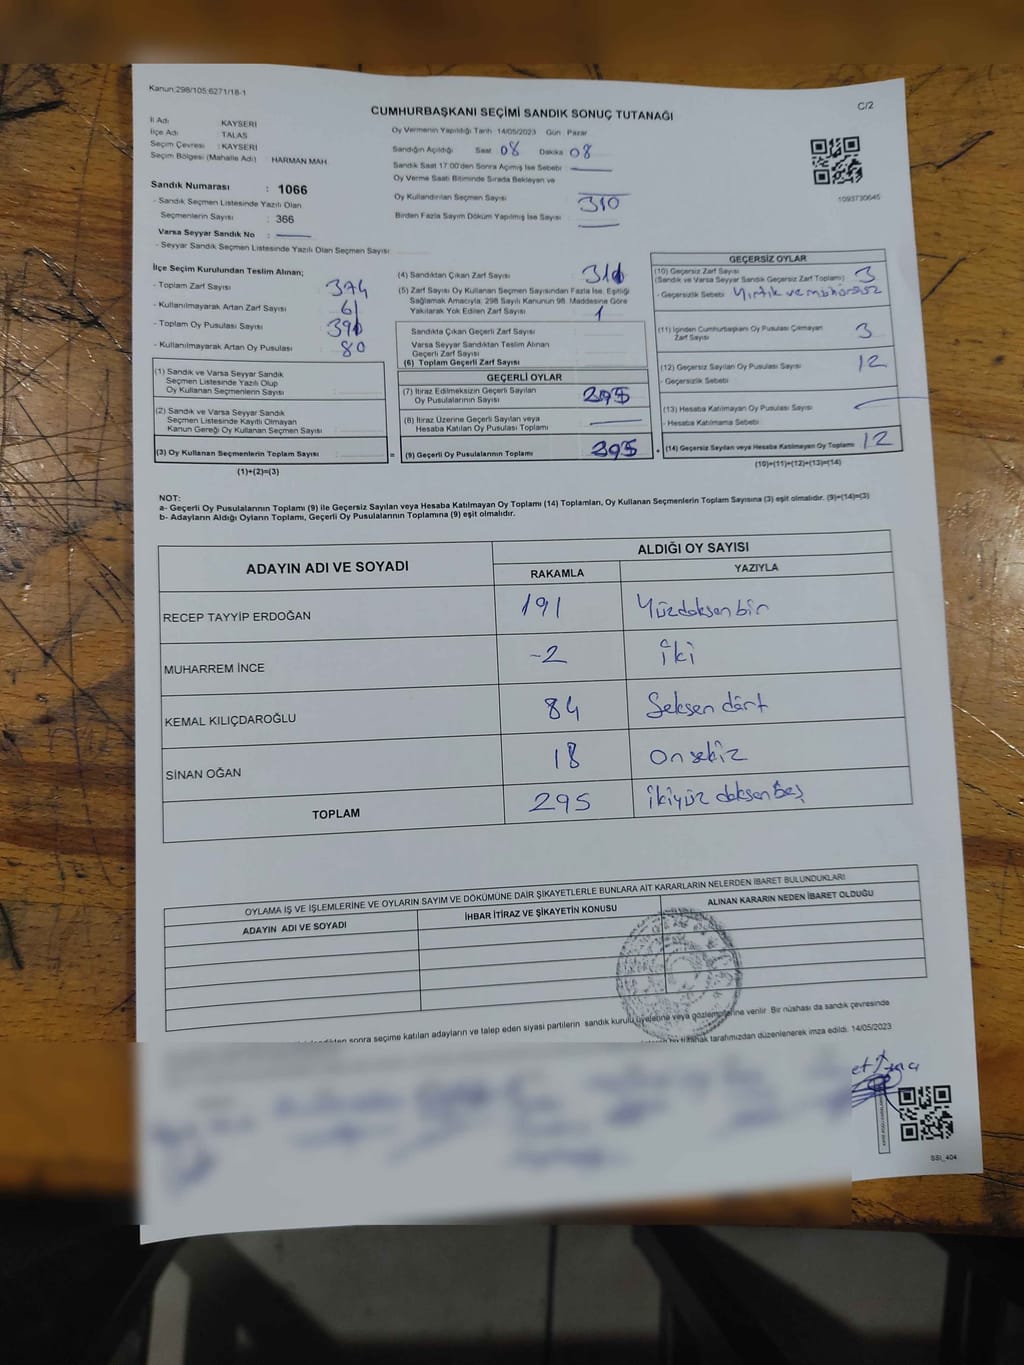 Kanun;298/105;6271/18-1
C/2
CUMHURBAŞKANI SEÇİMİ SANDIK SONUÇ TUTANAĞI
İl Adı : KAYSERİ
İlçe Adı : TALAS
Seçim Çevresi : KAYSERİ
Seçim Bölgesi (Mahalle Adı) : HARMAN MAH.
Sandık Numarası : 1066
- Sandık Seçmen Listesinde Yazılı Olan
Seçmenlerin Sayısı : 366
Varsa Seyyar Sandık No :
- Seyyar Sandık Seçmen Listesinde Yazılı Olan Seçmen Sayısı:
Oy Vermenin Yapıldığı Tarih 14/05/2023 Gün : Pazar
Sandığın Açıldığı Saat 08 Dakika 08
Sandık Saat 17:00'den Sonra Açılmış İse Sebebi :
Oy Verme Saati Bitiminde Sırada Bekleyen ve
Oy Kullandırılan Seçmen Sayısı 310
Birden Fazla Sayım Döküm Yapılmış İse Sayısı
1093730645
İlçe Seçim Kurulundan Teslim Alınan;
- Toplam Zarf Sayısı : 374
- Kullanılmayarak Artan Zarf Sayısı : 61
- Toplam Oy Pusulası Sayısı
- Kullanılmayarak Artan Oy Pusulası : 80
(1) Sandık ve Varsa Seyyar Sandık
Seçmen Listesinde Yazılı Olup
Oy Kullanan Seçmenlerin Sayısı :
(2) Sandık ve Varsa Seyyar Sandık
Seçmen Listesinde Kayıtlı Olmayan
Kanun Gereği Oy Kullanan Seçmen Sayısı :
(3) Oy Kullanan Seçmenlerin Toplam Sayısı :
(1)+(2)=(3)
(4) Sandıktan Çıkan Zarf Sayısı :
(5) Zarf Sayısı Oy Kullanan Seçmen Sayısından Fazla İse, Eşitliği
Sağlamak Amacıyla; 298 Sayılı Kanunun 98. Maddesine Göre
Yakılarak Yok Edilen Zarf Sayısı : 1
Sandıkta Çıkan Geçerli Zarf Sayısı :
Varsa Seyyar Sandıktan Teslim Alınan
Geçerli Zarf Sayısı
(6) Toplam Geçerli Zarf Sayısı
GEÇERLİ OYLAR
(7) İtiraz Edilmeksizin Geçerli Sayılan
Oy Pusulalarının Sayısı : 295
(8) İtiraz Üzerine Geçerli Sayılan veya
Hesaba Katılan Oy Pusulası Toplamı
= (9) Geçerli Oy Pusulalarının Toplamı 295
GEÇERSİZ OYLAR
(10) Geçersiz Zarf Sayısı
(Sandık ve Varsa Seyyar Sandık Geçersiz Zarf Toplamı) : 3
- Geçersizlik Sebebi Yırtık ve mühürsüz
(11) İçinden Cumhurbaşkanı Oy Pusulası Çıkmayan
Zarf Sayısı : 3
(12) Geçersiz Sayılan Oy Pusulası Sayısı : 12
- Geçersizlik Sebebi
(13) Hesaba Katılmayan Oy Pusulası Sayısı
- Hesaba Katılmama Sebebi
+ (14) Geçersiz Sayılan veya Hesaba Katılmayan Oy Toplamı : 12
(10)+(11)+(12)+(13)=(14)
NOT:
a- Geçerli Oy Pusulalarının Toplamı (9) ile Geçersiz Sayılan veya Hesaba Katılmayan Oy Toplamı (14) Toplamları, Oy Kullanan Seçmenlerin Toplam Sayısına (3) eşit olmalıdır. (9)+(14)=(3)
b- Adayların Aldığı Oyların Toplamı, Geçerli Oy Pusulalarının Toplamına (9) eşit olmalıdır.
ADAYIN ADI VE SOYADI
ALDIĞI OY SAYISI
RAKAMLA YAZIYLA
RECEP TAYYİP ERDOĞAN 191 Yüzdoksan bir
MUHARREM İNCE -2 iki
KEMAL KILIÇDAROĞLU 84 Seksen dört
SİNAN OĞAN 18 On sekiz
TOPLAM 295 İkiyüz doksan beş
OYLAMA İŞ VE İŞLEMLERİNE VE OYLARIN SAYIM VE DÖKÜMÜNE DAİR ŞİKAYETLERLE BUNLARA AİT KARARLARIN NELERDEN İBARET BULUNDUKLARI
ADAYIN ADI VE SOYADI İHBAR İTİRAZ VE ŞİKAYETİN KONUSU ALINAN KARARIN NEDEN İBARET OLDUĞU
sonra seçime katılan adayların ve talep eden siyasi partilerin sandık kurulu üyelerine veya gözlemcilerine verilir. Bir nüshası da sandık çevresinde
tarafımızdan düzenlenerek imza edildi. 14/05/2023
SSI_404